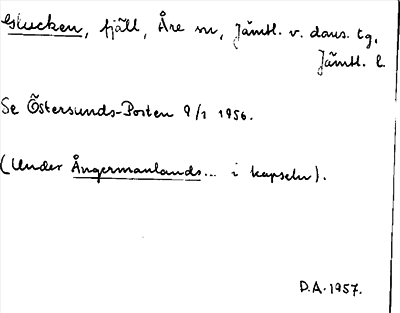 Glucken, fjäll, Åre sn, Jämtl. v. doms. tg,
Jämtl. l.
Se Östersunds-Posten 9/1 1956.
(Under Ångermanlands... i kapseln).
D.A. 1957.